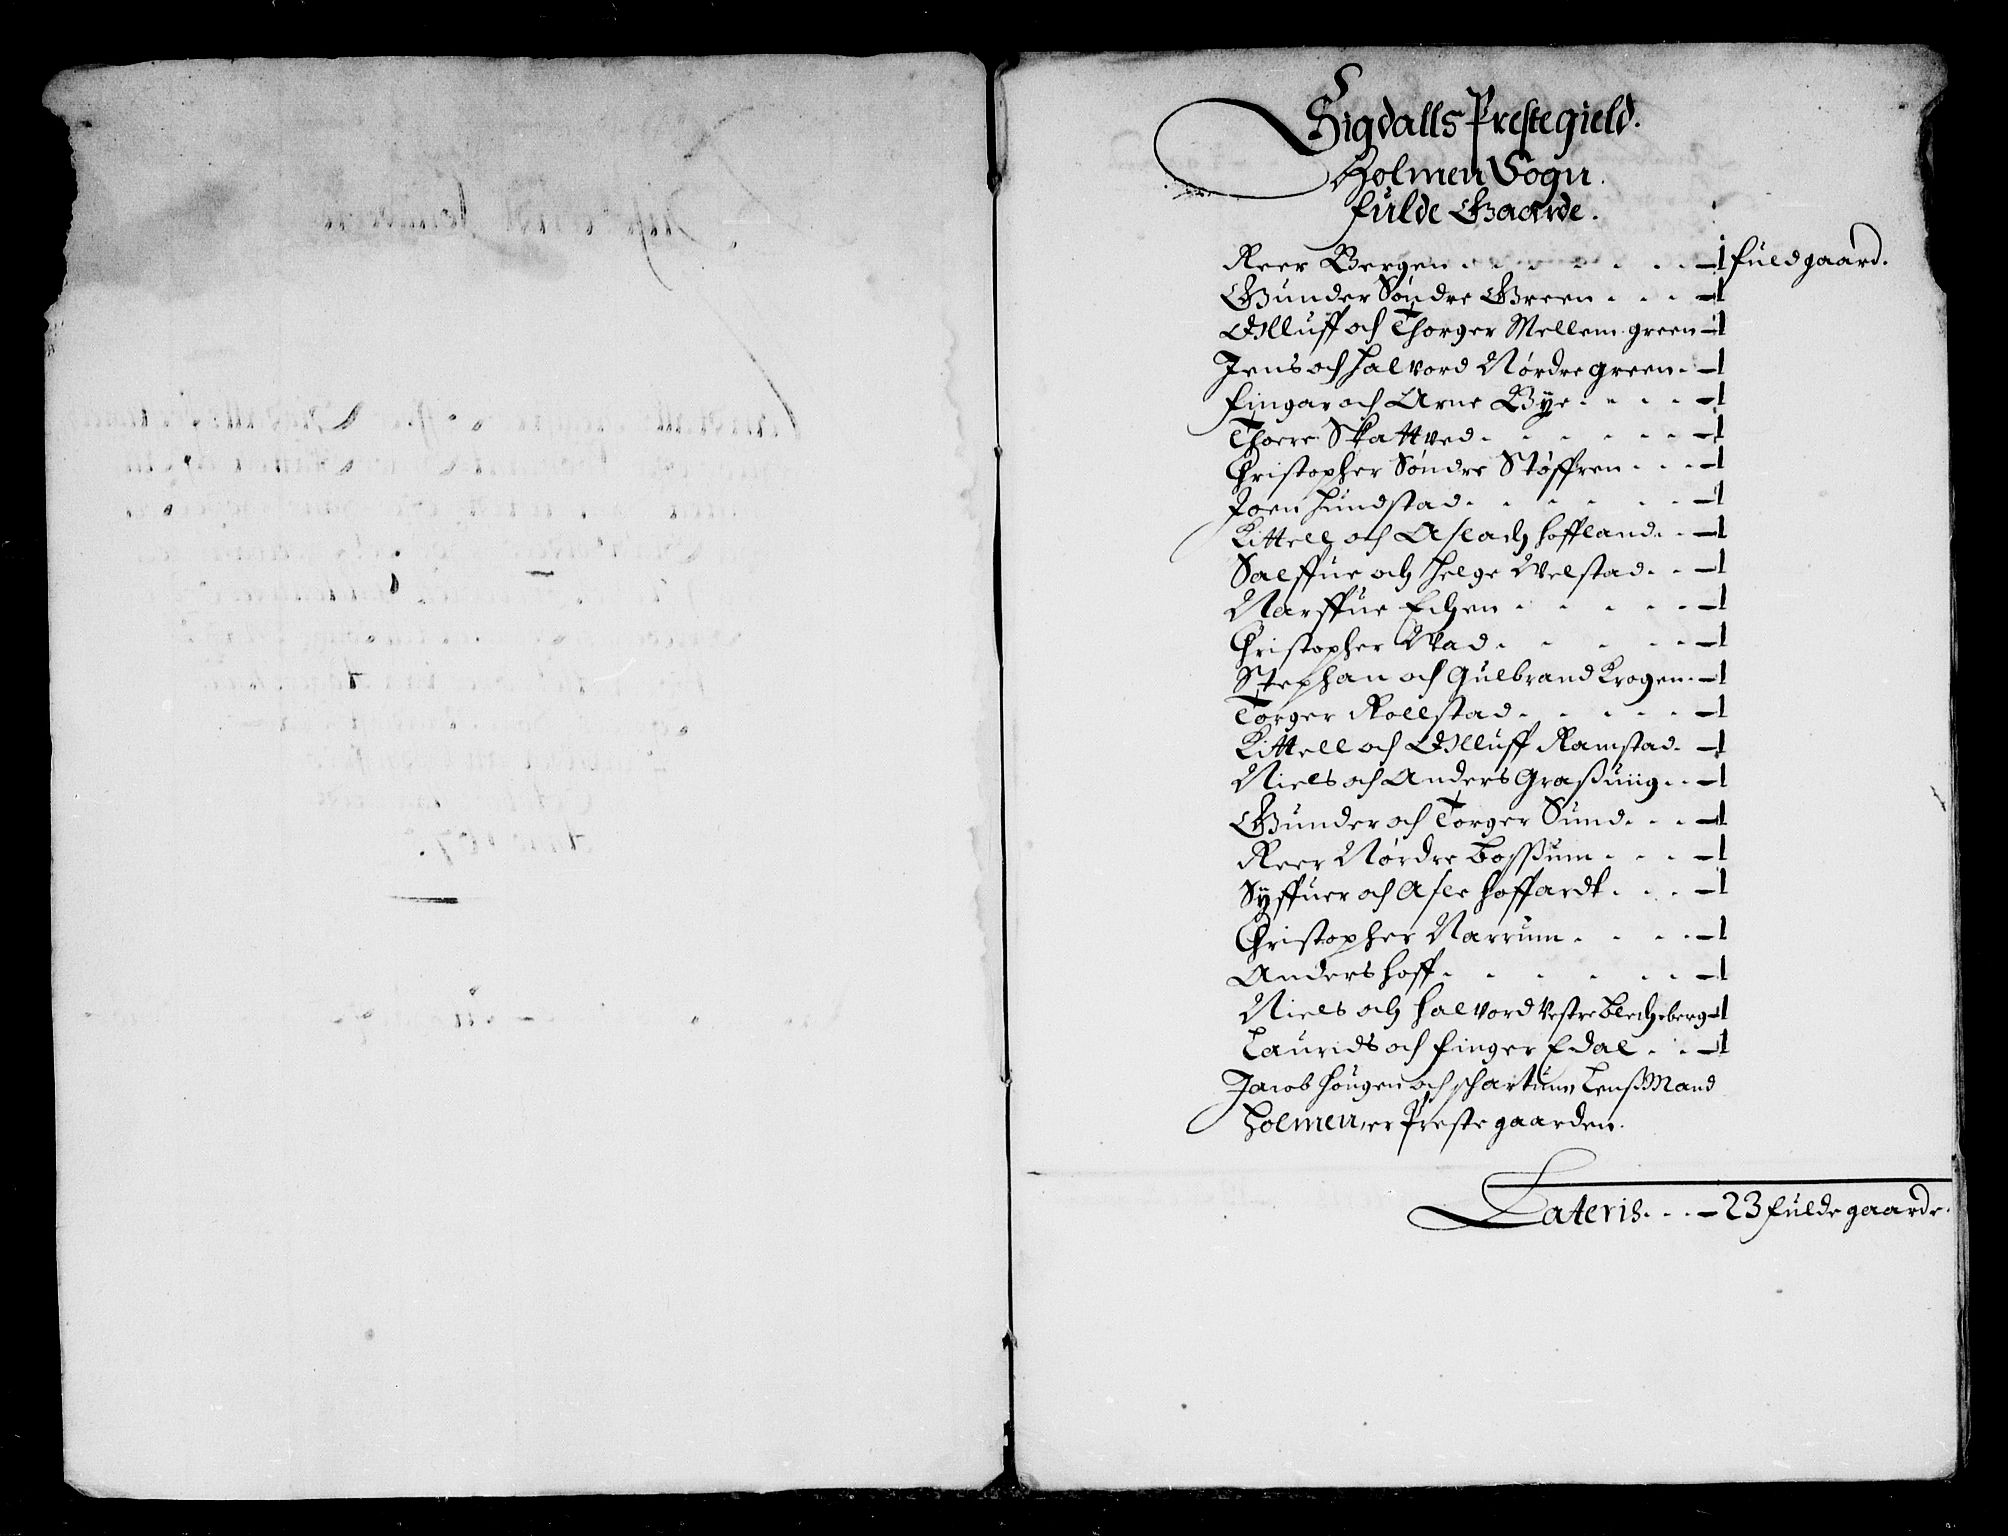 Sigdalls Prestegield.
Holmen Sogn.
fulde Gaarde.
Reer Bergen - - - - - - - 1 fuldgaard.
Gunder Søndre Green - - - 1
Olluff och Thorger Mellem green - 1
Jens och Halvord Nørdre green - 1
fingar och Arne Bÿe - - - - 1
Thoere Skattved - - - - - - 1
Christopher Søndre Støffren - - - 1
Joen Hundstad - - - - - - 1
Kittell och Aslach Hoffland - - 1
Salffue och Helge Velstad - - 1
Narffue Echen - - - - - 1
Christopher Wad - - - - - 1
Stephan och Gulbrand Krogen - 1
Torger Rollstad - - - - - 1
Kittell och Olluff Ramstad - 1
Niels och Anders Graßuiig - - 1
Gunder och Torger Sund - - - 1
Reer Nørdre Boßum - - - 1
Sÿffuer och Asle Hoffardt - - - 1
Christopher Narrum - - - - 1
Anders Hoff - - - - - - 1
Niels och Halvord Vestre Blecheberg - 1
Laurids och finger Edal - - 1
Jacob Hougen och schartum LensMand
Holmen, er Prestegaarden.
Lateris - - - 23 fulde gaarde.